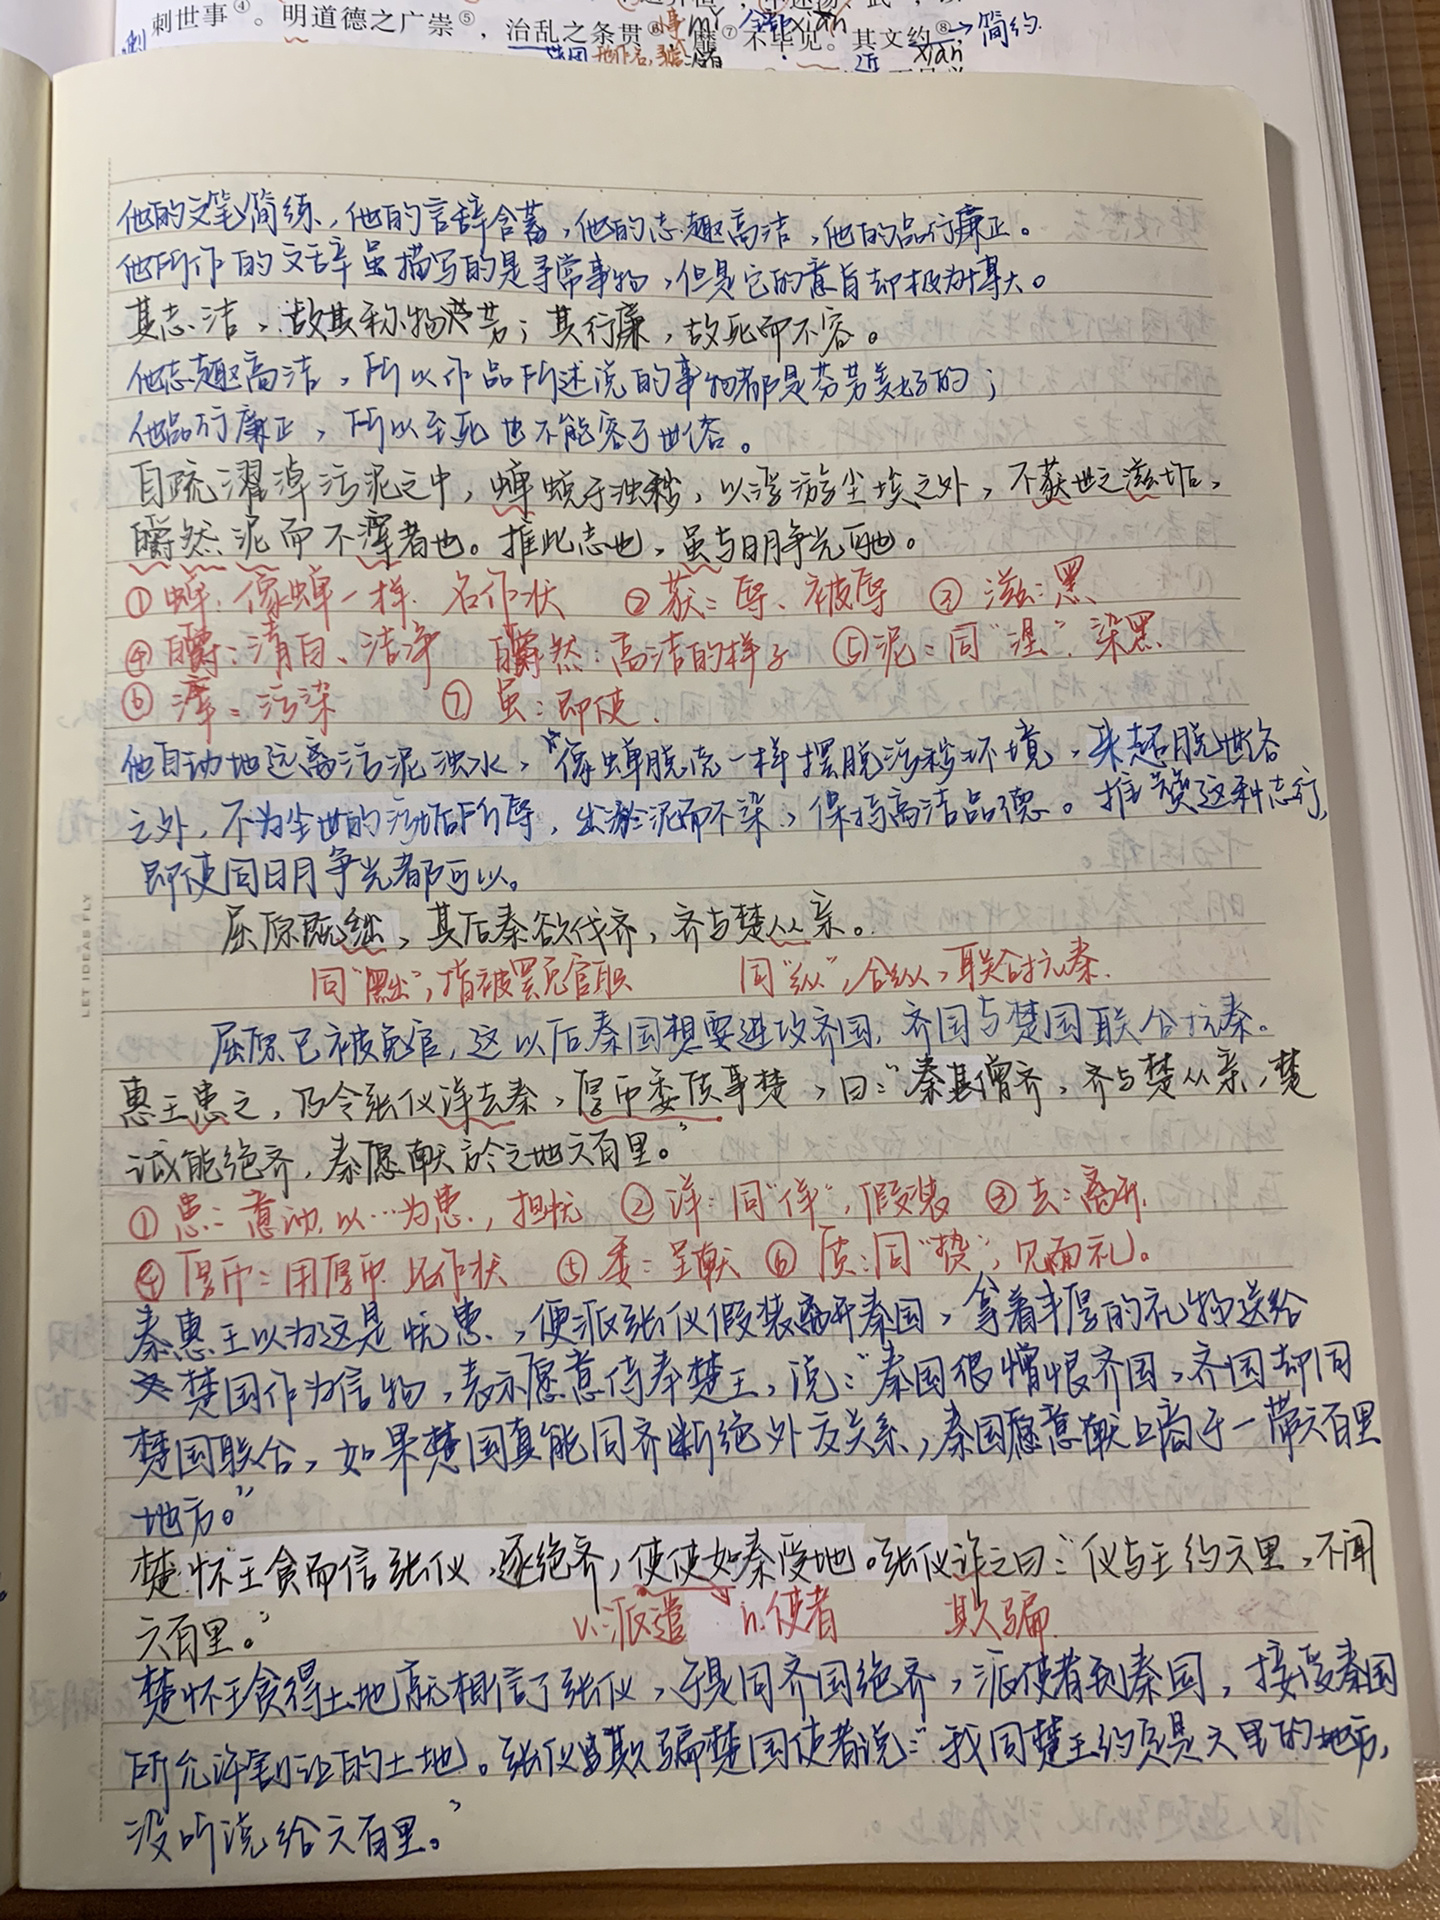 刺世事④。明道德之广崇⑤，治乱之条贯⑥，靡⑦不毕见。其文约⑧→简约
mí xiàn
他的文笔简练，他的言辞含蓄，他的志趣高洁，他的品行廉正。
他所作的文辞虽描写的是寻常事物，但是它的意旨却极为博大。
其志洁，故其称物芳；其行廉，故死而不容。
他志趣高洁，所以作品所述说的事物都是芬芳美好的；
他品行廉正，所以至死也不能容于世俗。
自疏濯淖污泥之中，蝉蜕于浊秽，以浮游尘埃之外，不获世之滋垢，
皭然泥而不滓者也。推此志也，虽与日月争光可也。
①蝉：像蝉一样. 名作状 ②获：辱、被辱 ③滋：黑
④皭：清白、洁净 皭然：高洁的样子 ⑤泥：同“涅”. 染黑
⑥滓：污染 ⑦虽：即使.
他自动地远离污泥浊水，像蝉脱壳一样摆脱污秽环境，来超脱世俗
之外，不为尘世的污垢所辱，出淤泥而不染，保持高洁品德。推赞这种志行，
即使同日月争光都可以。
屈原既绌，其后秦欲伐齐，齐与楚从亲。
同“黜”，指被罢免官职 同“纵”，合纵，联合抗秦.
屈原已被免官，这以后秦国想要进攻齐国，齐国与楚国联合抗秦。
惠王患之，乃令张仪详去秦，厚币委质事楚，曰：“秦甚憎齐，齐与楚从亲，楚
诚能绝齐，秦愿献商於之地六百里。”
①患：意动，以…为患，担忧 ②详：同“佯”，假装 ③去：离开.
④厚币：用厚币. 名作状 ⑤委：呈献 ⑥质：同“贽”，见面礼。
秦惠王以为这是忧患，便派张仪假装离开秦国，拿着丰厚的礼物送给
楚国作为信物，表示愿意侍奉楚王，说：“秦国很憎恨齐国，齐国却同
楚国联合，如果楚国真能同齐断绝外交关系，秦国愿意献上商于一带六百里
地方。”
楚怀王贪而信张仪，遂绝齐，使使如秦受地。张仪诈之曰：“仪与王约六里，不闻
六百里。”
v.派遣 n.使者 欺骗
楚怀王贪得土地就相信了张仪，于是同齐国绝齐，派使者到秦国，接受秦国
所允许割让的土地。张仪欺骗楚国使者说：“我同楚王约定是六里的地方，
没听说给六百里。”
LET IDEAS FLY